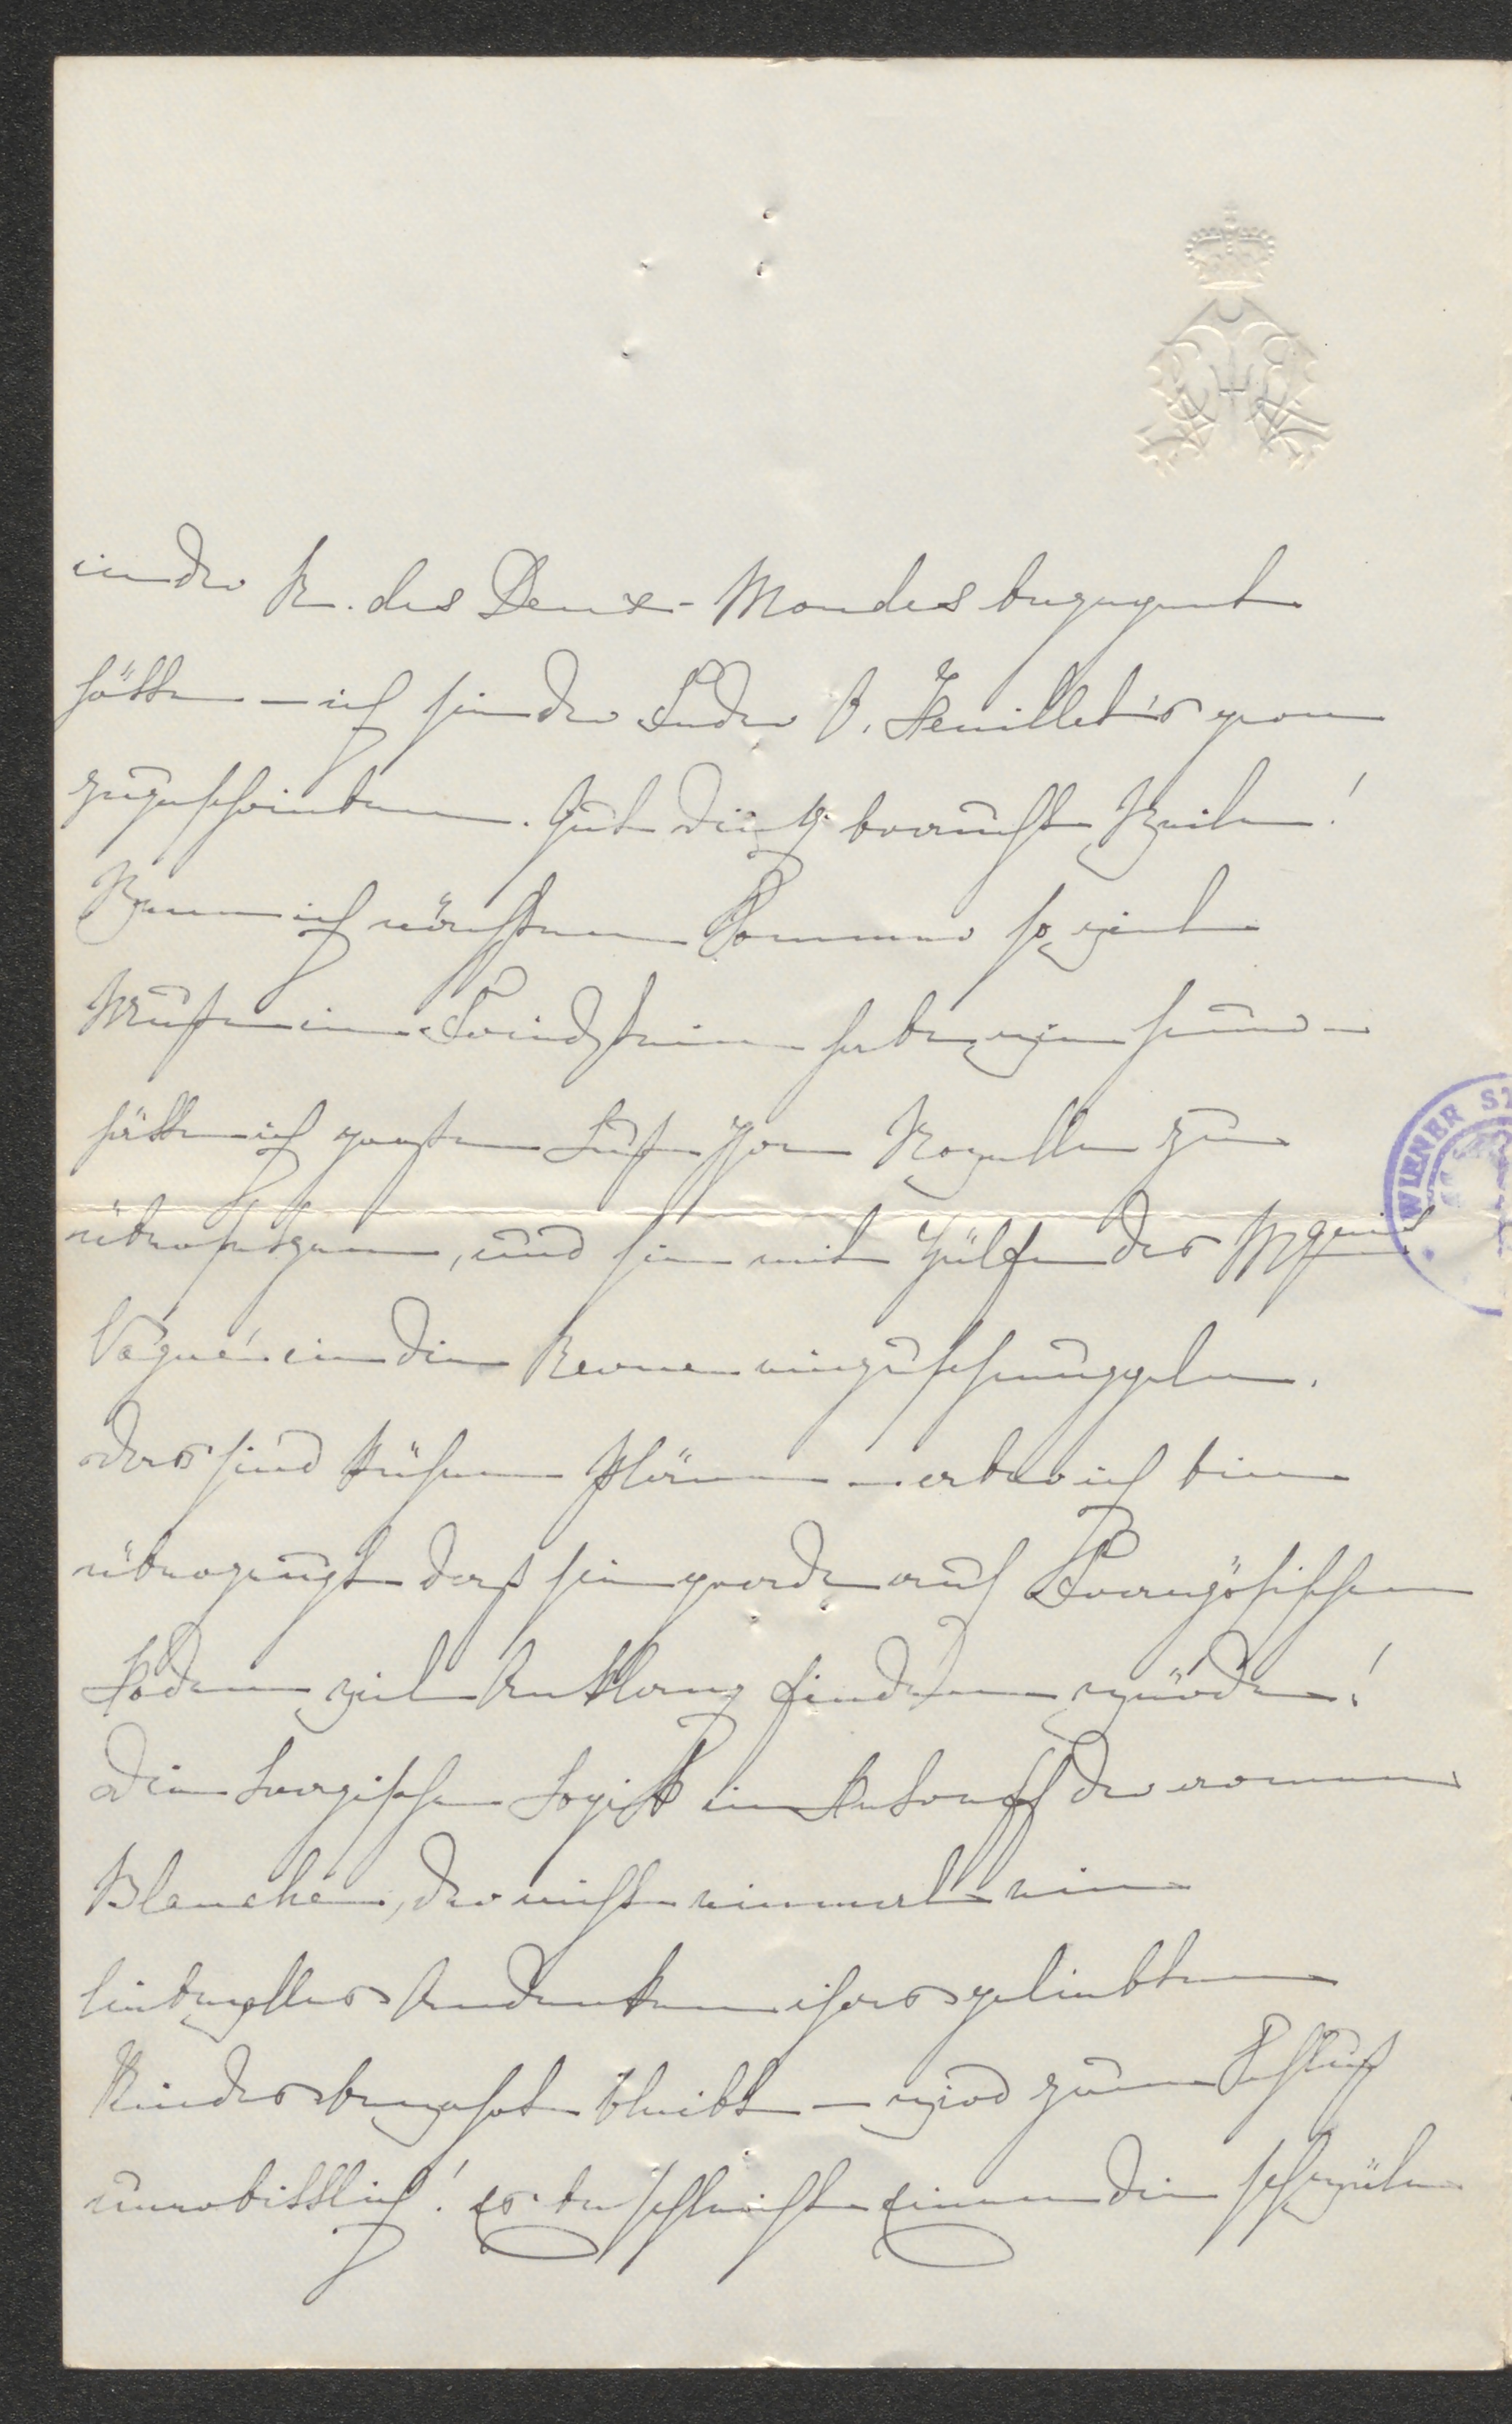 in der R. des Deux-Mondes begegnet
hätte – ich sie der Feder O. Feuillet's gern
zugeschrieben. Gut Ding braucht Weile!
Wenn ich nächsten Sommer so viel
Muße in Friedstein habe, wie heuer –
hätte ich große Lust Ihre Novelle zu
übersetzen, und sie mit Hülfe des Mquis
Vogué in die Revue einzuschmuggeln.
Das sind kühne Pläne – aber ich bin
überzeugt daß sie gerade auf Französischem
Boden viel Anklang finden würde!
Die tragische Logik im Betreff der armen
Blanche, der nicht einmal ein
liebevolles Andenken ihres geliebten
Kindes bewahrt bleibt – wird zum Schluß
unerbittlich! Es beschleicht Einen die schwüle
WIENER ST